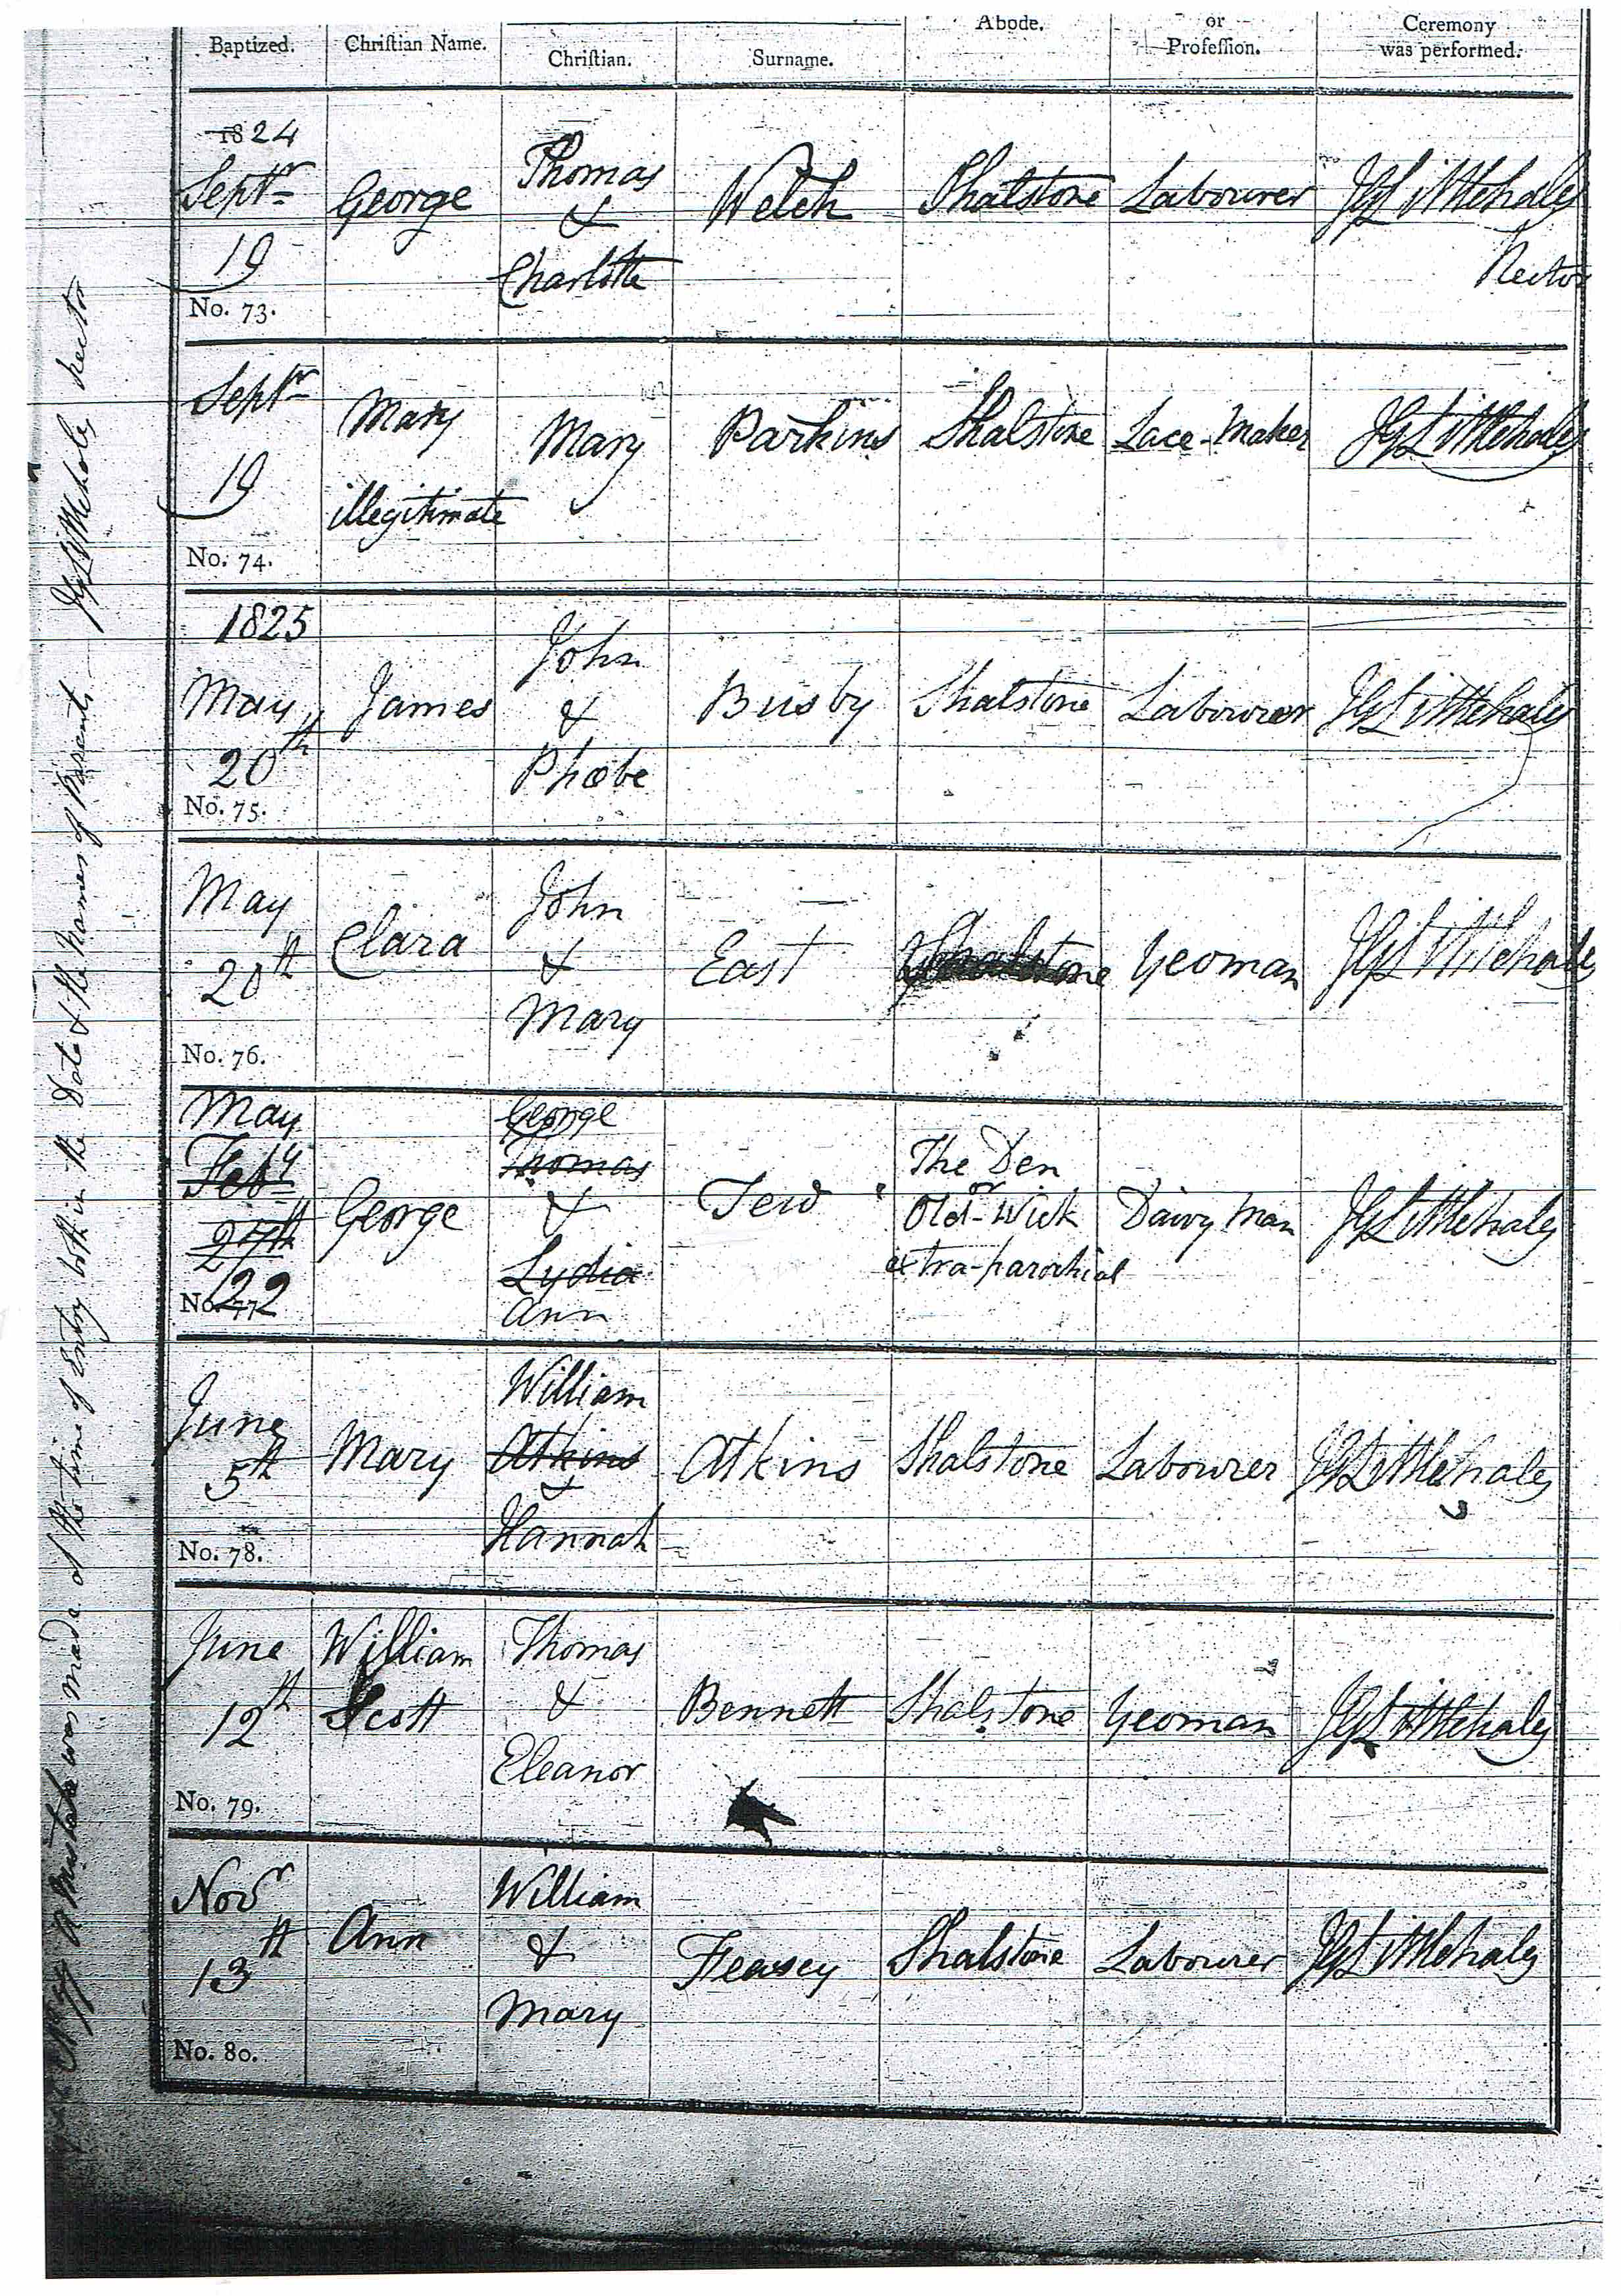 Baptized.
Chriſtian Name.
Chriſtian.
Surname.
Abode.
or
Profeſſion.
Ceremony
was performed.
1824
Septr
19
No. 73.
George
Thomas
&
Charlotte
Welch
Shalstone
Labourer
JGLittlehales
Rector
Septr
19
No. 74.
Mary
illegitimate
Mary
Parkins
Shalstone
Lace-Maker
JGLittlehales
1825
May
20th
No. 75.
James
John
&
Phœbe
Busby
Shalstone
Labourer
JGLittlehales
May
20th
No. 76.
Clara
John
&
Mary
East
Shalstone
Yeoman
JGLittlehales
May
Feby
27th
22
No. 77
George
George
Thomas
&
Lydia
Ann
Tew
The Den
or
Old-Wick
extra-parochial
Dairy Man
JGLittlehales
June
5th
No. 78.
Mary
William
Atkins
&
Hannah
Atkins
Shalstone
Labourer
JGLittlehales
June
12th
No. 79.
William
Scott
Thomas
&
Eleanor
Bennett
Shalstone
Yeoman
JGLittlehales
Novr
13th
No. 80.
Ann
William
&
Mary
Feasey
Shalstone
Labourer
JGLittlehales
A Mistake was made at the time of Entry both in the Date & the Names of Parents JGLittlehales Rector